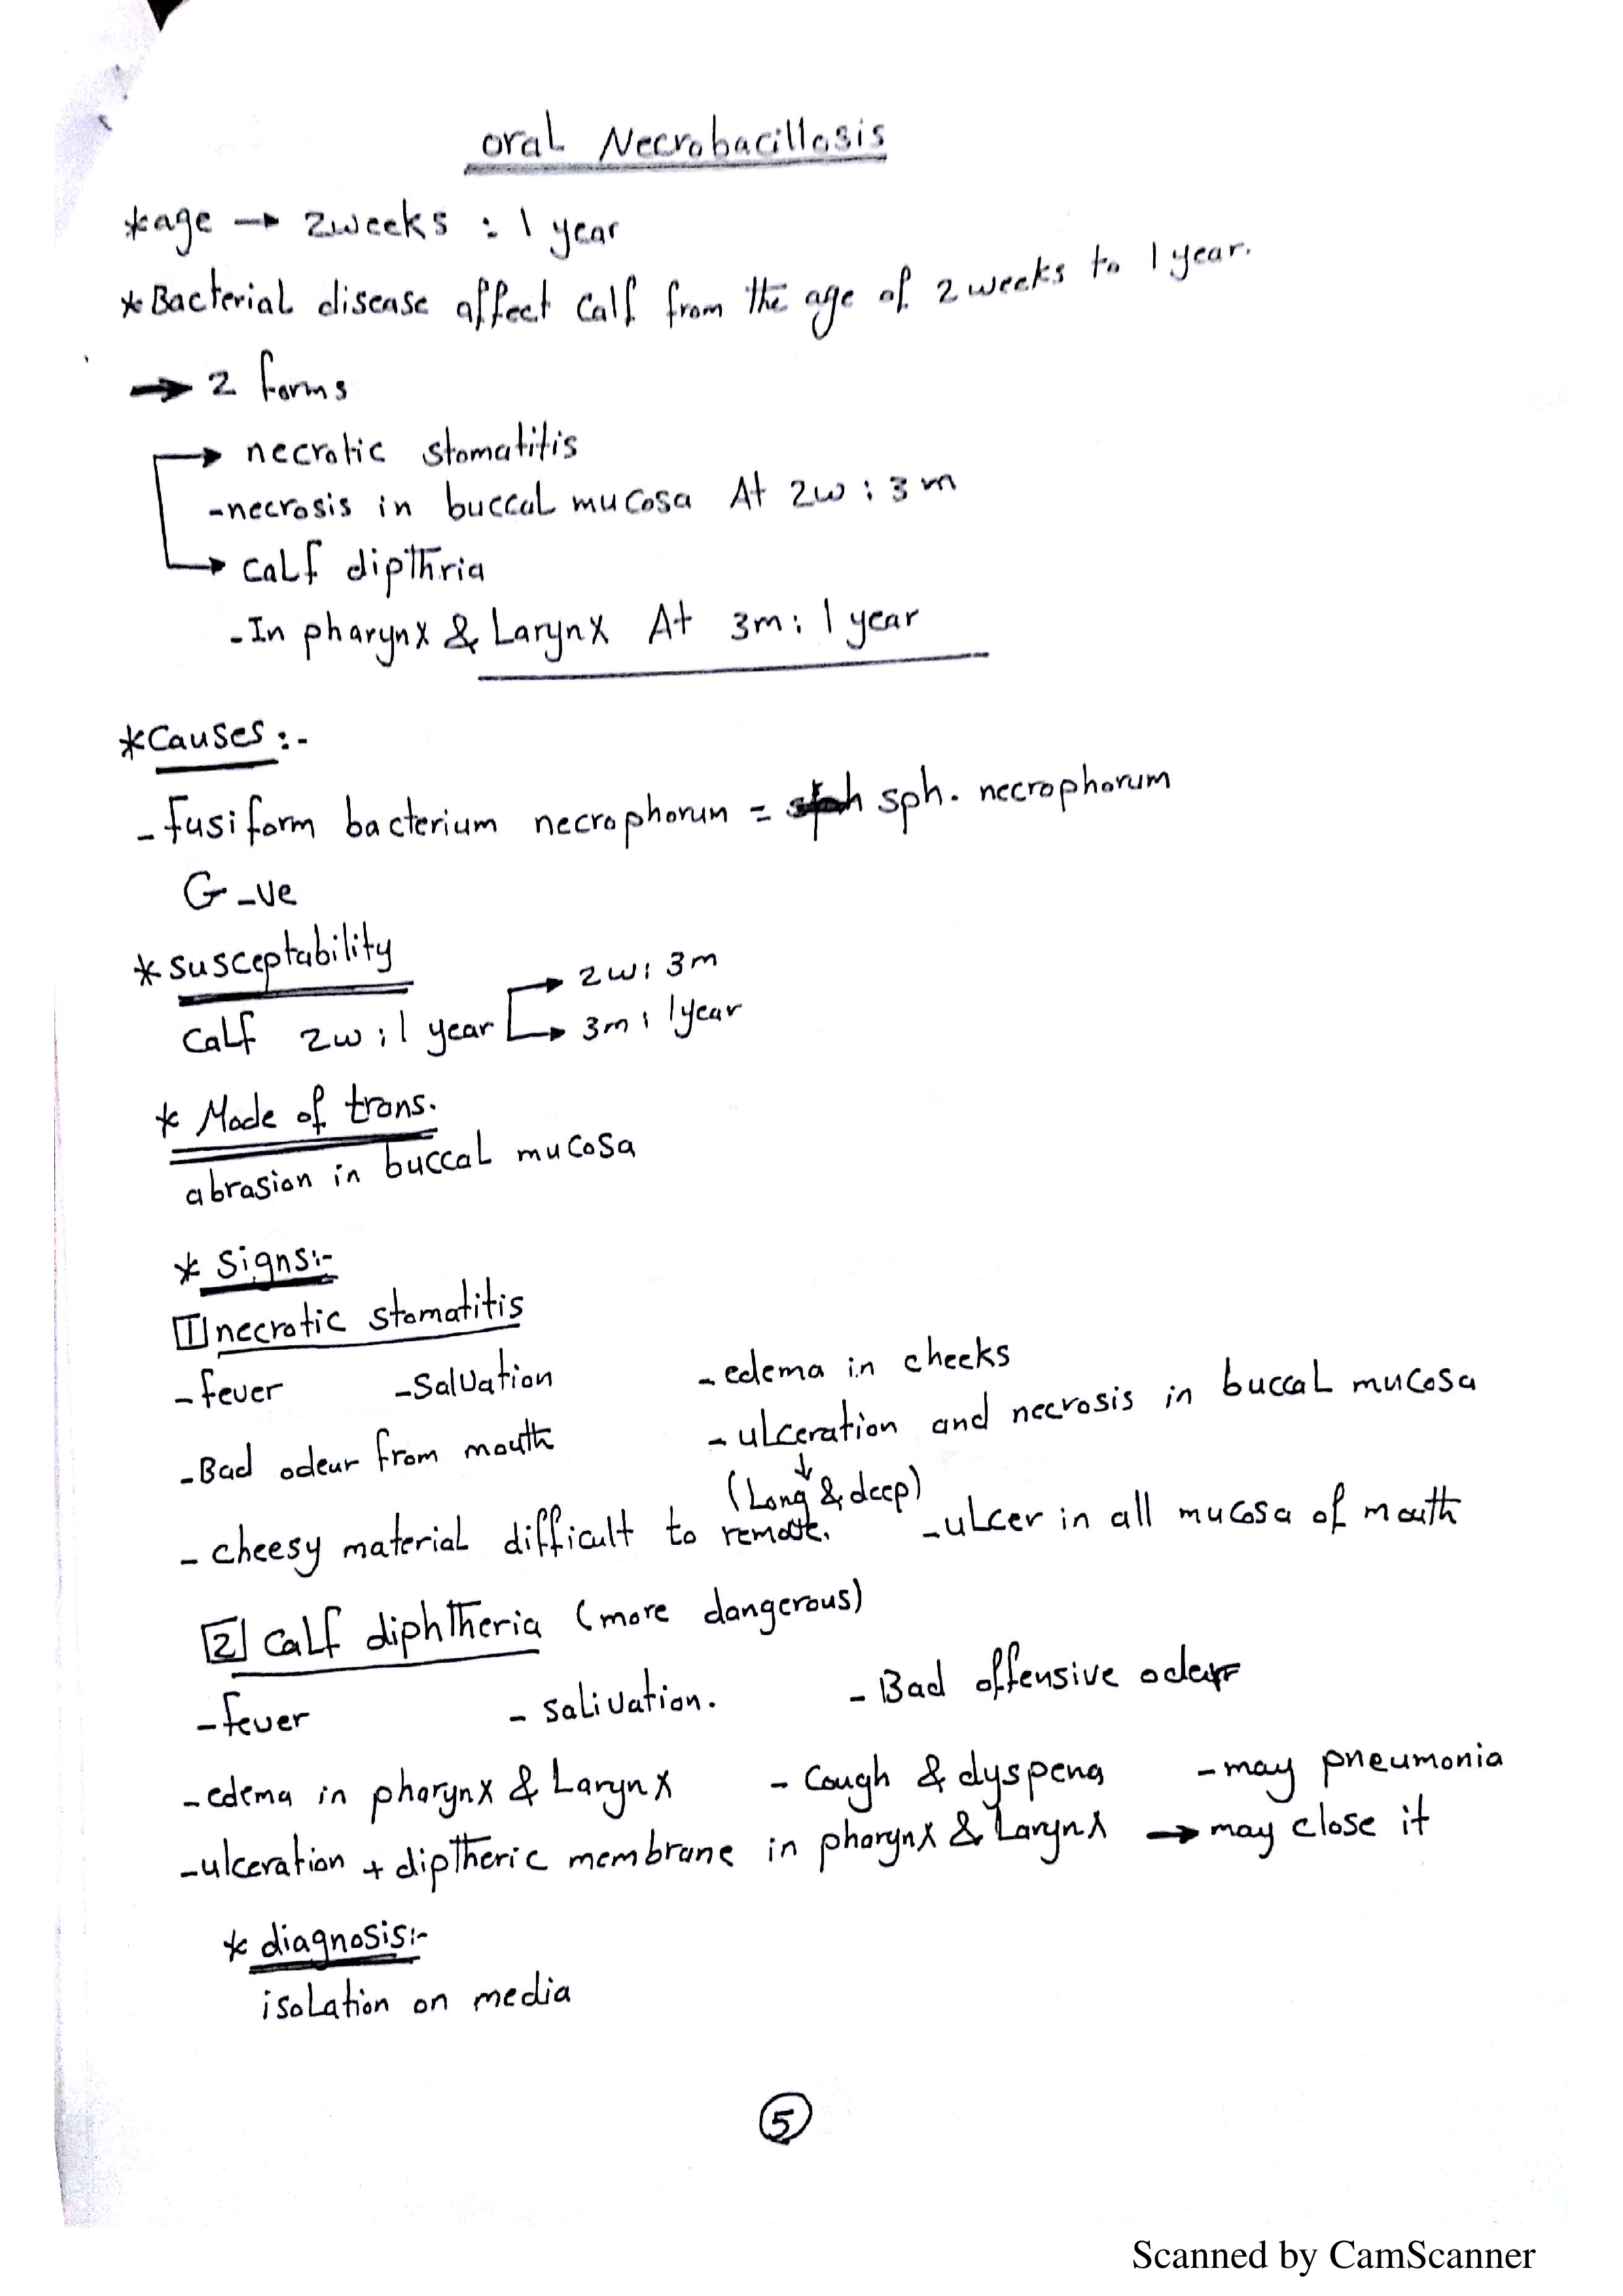 oral Necrobacillosis
*age → 2weeks : 1 year
*Bacterial disease affect calf from the age of 2 weeks to 1 year.
→ 2 forms
→ necrotic stomatitis
-necrosis in buccal mucosa At 2w : 3m
→ calf dipthria
-In pharynx & Larynx At 3m : 1 year
*Causes :-
-Fusiform bacterium necrophorum = sph. necrophorum
G -ve
*susceptability
calf 2w : 1 year → 2w : 3m
→ 3m : 1year
* Mode of trans.
abrasion in buccal mucosa
* Signs:-
1 necrotic stomatitis
-fever -Salvation -edema in cheeks
-Bad odeur from mouth -ulceration and necrosis in buccal mucosa
↓
(Long & deep)
- cheesy material difficult to remove. -ulcer in all mucosa of mouth
2 calf diphtheria (more dangerous)
-fever - salivation. - Bad offensive odeur
-edema in pharynx & Larynx - Cough & dyspena -may pneumonia
-ulceration + diptheric membrane in pharynx & Larynx → may close it
* diagnosis:-
isolation on media
5
Scanned by CamScanner